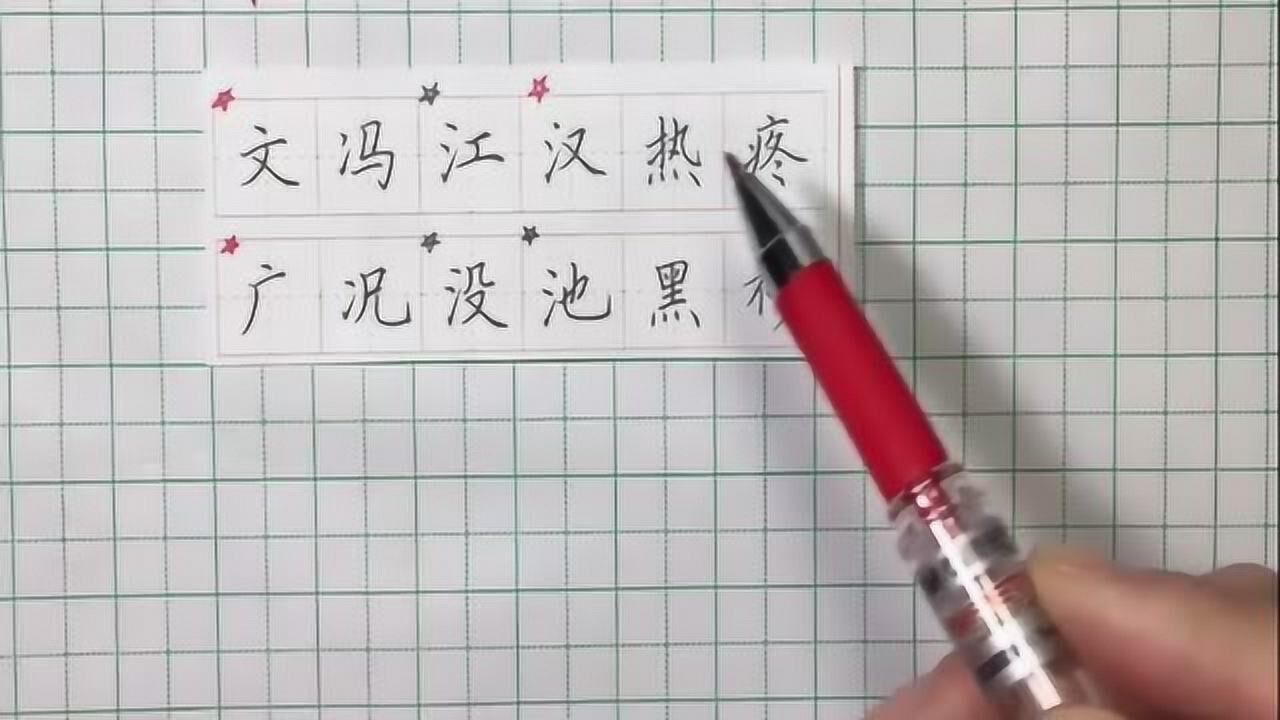 文冯江汉热疼
广况没池黑